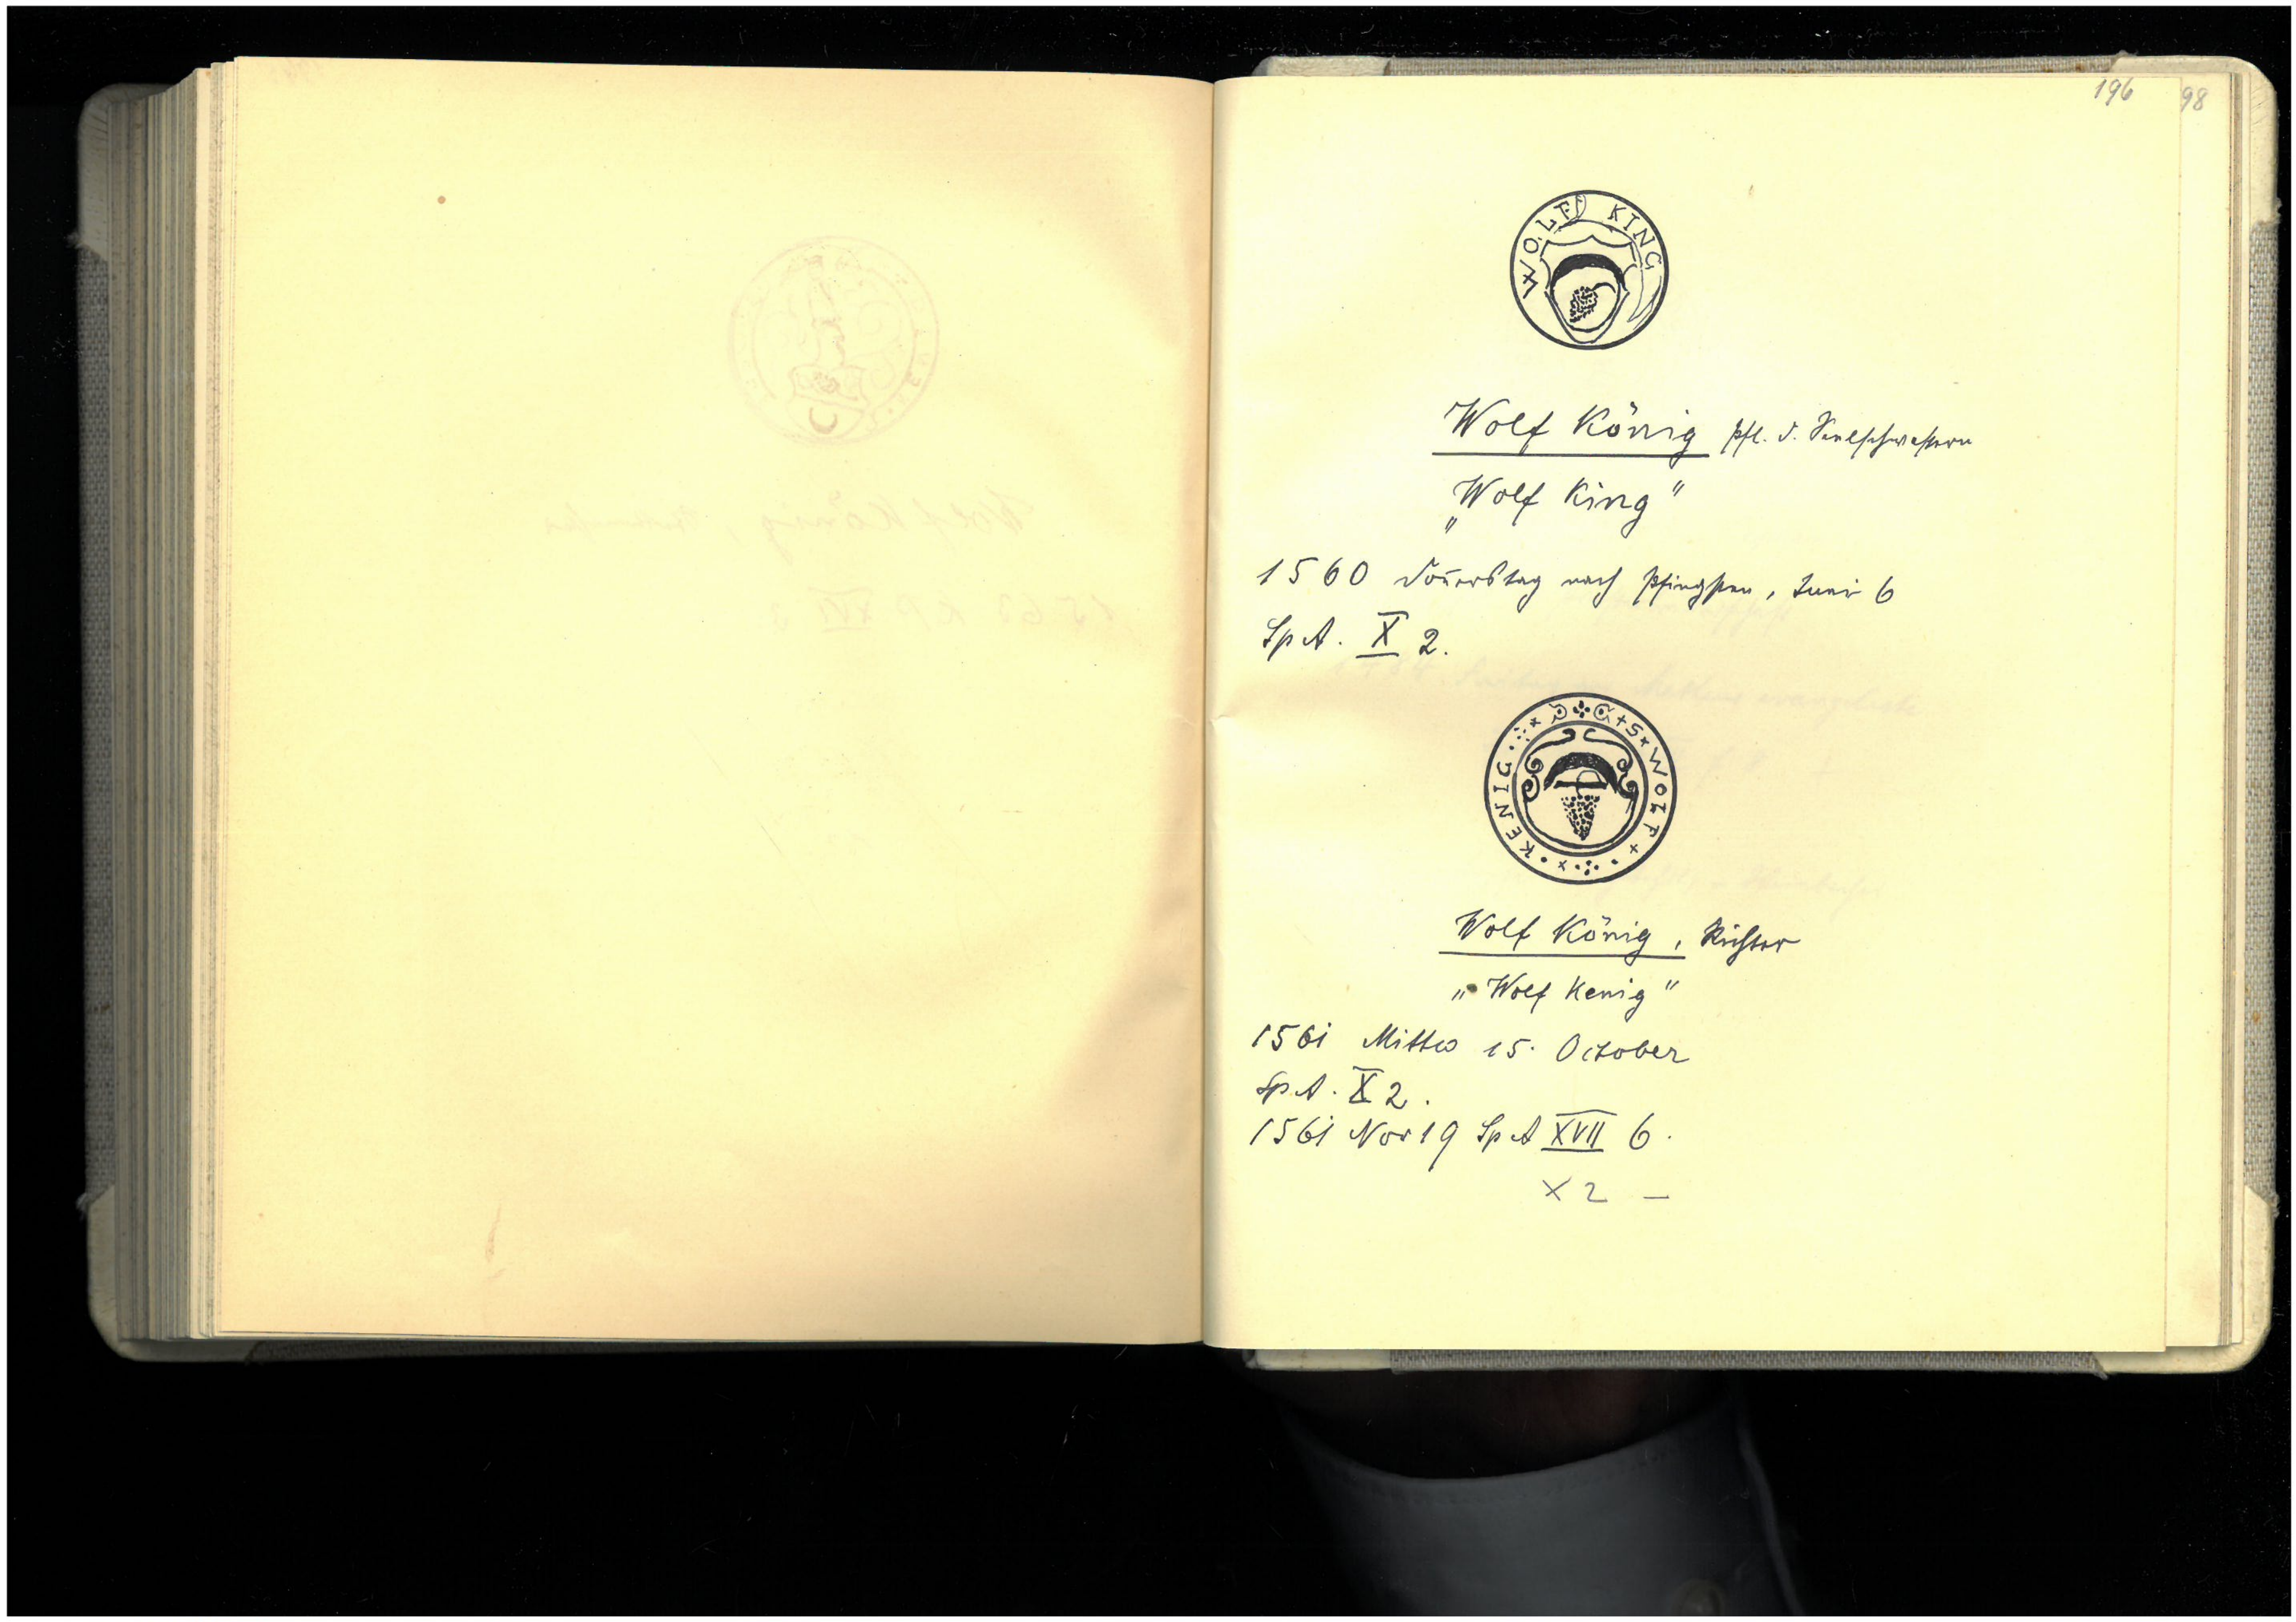 196
98
WOLFF KING
Wolf König pfl. d. Seelschwestern
"Wolf King"
1560 Donerstag nach Pfingsten, Juni 6
Sp A. X 2.
S + WOLF + KENIG
Wolf König, Richter
„Wolf Kenig"
1561 Mittw 15. October
Sp. A. X 2.
1561 Nov 19 Sp A XVII 6.
X 2 —